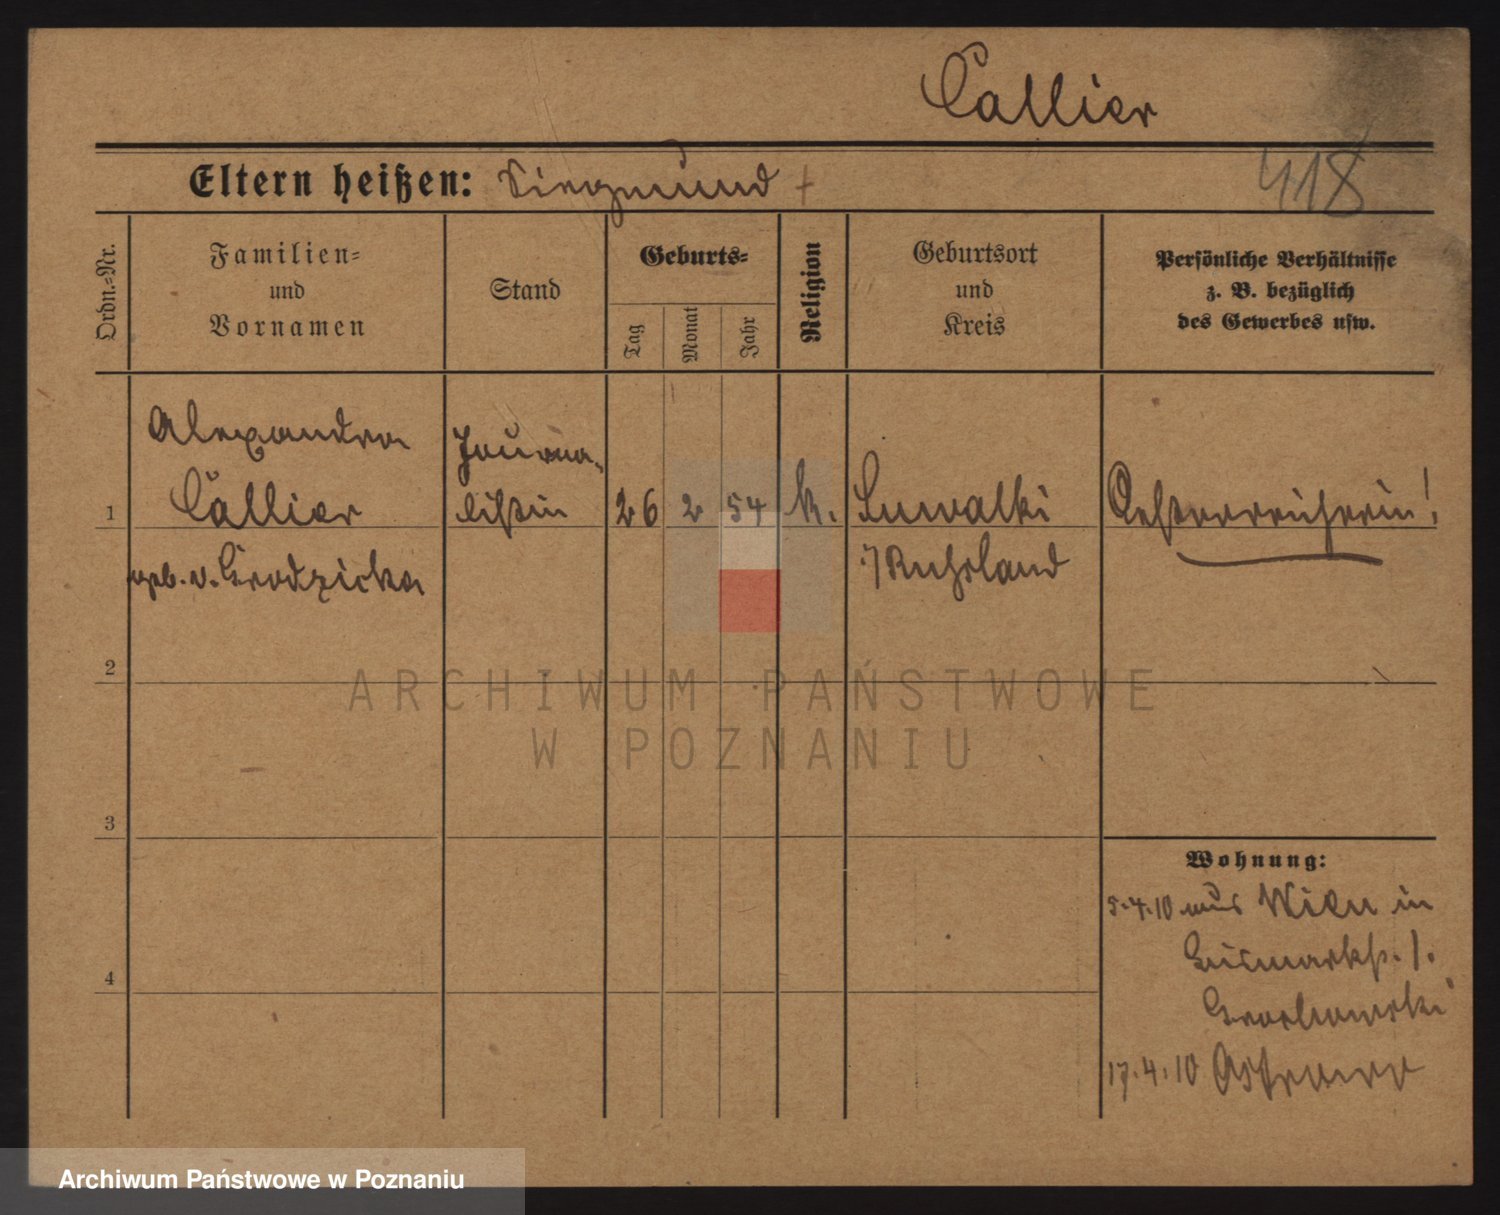 Callier
418
Eltern heißen: Siegmund †
Ordn.-Nr.
Familien-
und
Vornamen
Stand
Geburts-
Tag
Monat
Jahr
Religion
Geburtsort
und
Kreis
Persönliche Verhältnisse
z. B. bezüglich
des Gewerbes usw.
Alexandra
Callier
geb. v. Grodzicka
Journa-
listin
1
26
2
54
k.
Suwalki
Russland
Oesterreicherin!
2
3
4
Wohnung:
5.4.10 aus Wien in
Bismarckstr. 1.
Grochowski
17.4.10 Ostrowo
ARCHIWUM PAŃSTWOWE
W POZNANIU
Archiwum Państwowe w Poznaniu